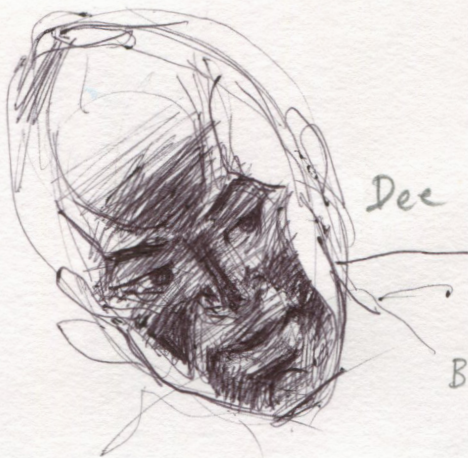 Dee
B